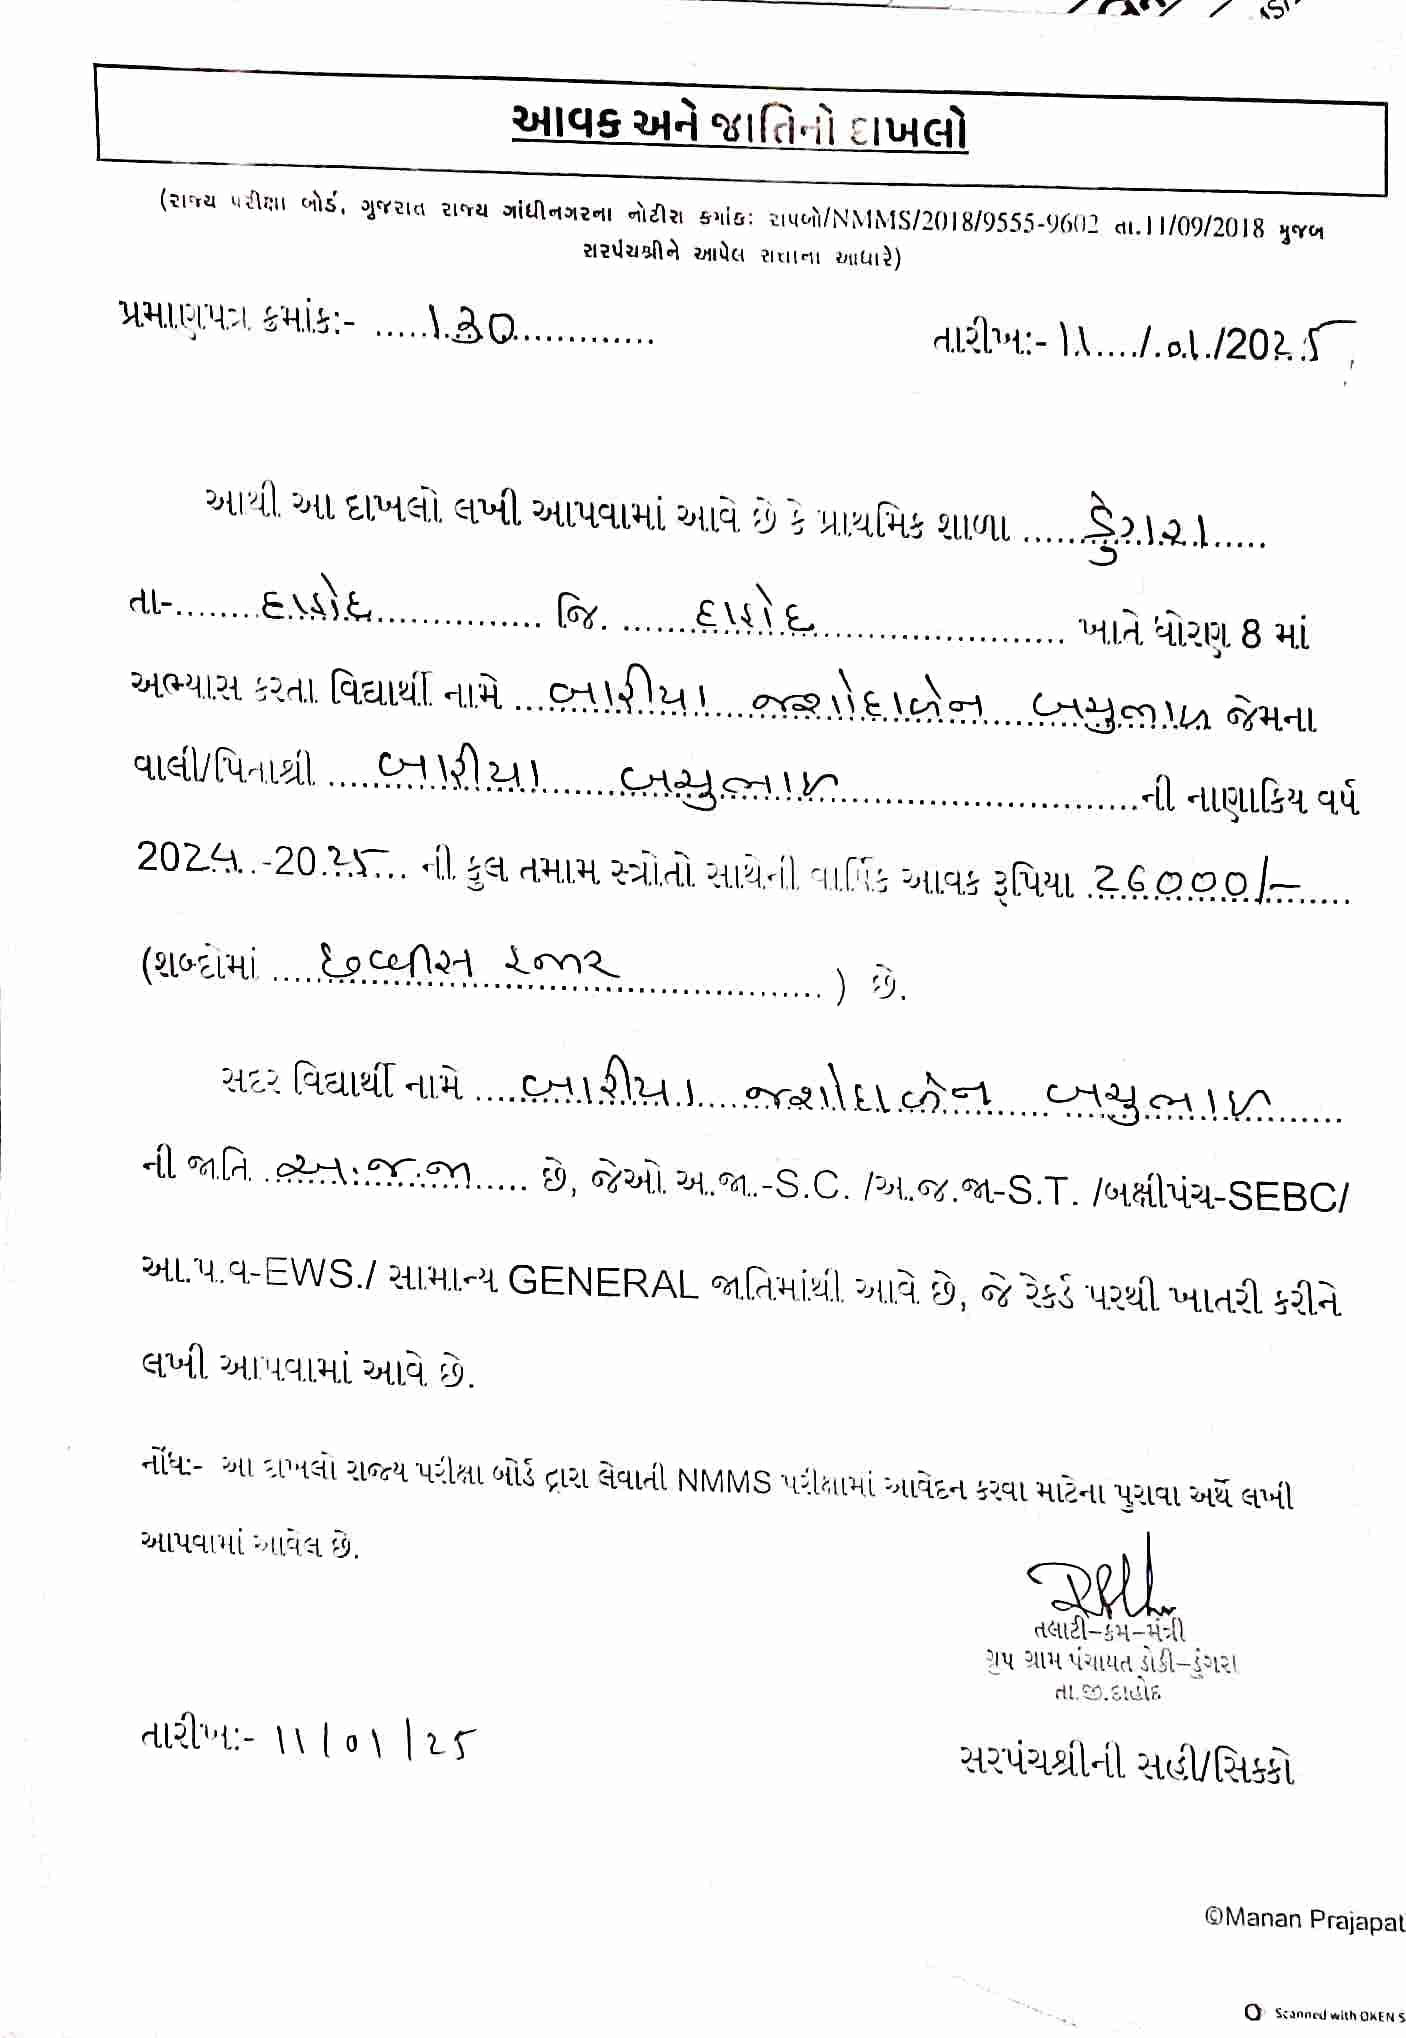 આવક અને જાતિનો દાખલો
(રાજ્ય પરીક્ષા બોર્ડ, ગુજરાત રાજ્ય ગાંધીનગરના નોટીસ ક્રમાંકઃ રાપબો/NMMS/2018/9555-9602 તા.11/09/2018 મુજબ
સરપંચશ્રીને આપેલ સત્તાના આધારે)
પ્રમાણપત્ર ક્રમાંક:- .....૧૩૦............. તારીખ:- ૧૧..../.૦૧./20૨૫
આથી આ દાખલો લખી આપવામાં આવે છે કે પ્રાથમિક શાળા ......ડુંગરા.....
તા-........દાહોદ................. જિ. ......દાહોદ........................ ખાતે ધોરણ 8 માં
અભ્યાસ કરતા વિદ્યાર્થી નામે ...બારીયા જશોદાબેન બચુભાઇ જેમના
વાલી/પિતાશ્રી .....બારીયા બચુભાઇ..............................ની નાણાકિય વર્ષ
202૪..-20.૨૫... ની કુલ તમામ સ્ત્રોતો સાથેની વાર્ષિક આવક રૂપિયા .26000/-.....
(શબ્દોમાં ....છવ્વીસ હજાર....................) છે.
સદર વિદ્યાર્થી નામે ....બારીયા જશોદાબેન બચુભાઇ.......
ની જાતિ .અ.જ.જા..... છે, જેઓ અ.જા.-S.C. /અ.જ.જા-S.T. /બક્ષીપંચ-SEBC/
આ.પ.વ-EWS./ સામાન્ય GENERAL જાતિમાંથી આવે છે, જે રેકર્ડ પરથી ખાતરી કરીને
લખી આપવામાં આવે છે.
નોંધ:- આ દાખલો રાજ્ય પરીક્ષા બોર્ડ દ્વારા લેવાતી NMMS પરીક્ષામાં આવેદન કરવા માટેના પુરાવા અર્થે લખી
આપવામાં આવેલ છે.
તલાટી-કમ-મંત્રી
ગ્રુપ ગ્રામ પંચાયત ડોકી-ડુંગરા
તા.જી.દાહોદ
તારીખ:- ૧૧/૦૧/૨૫
સરપંચશ્રીની સહી/સિક્કો
©Manan Prajapat
Scanned with OKEN S